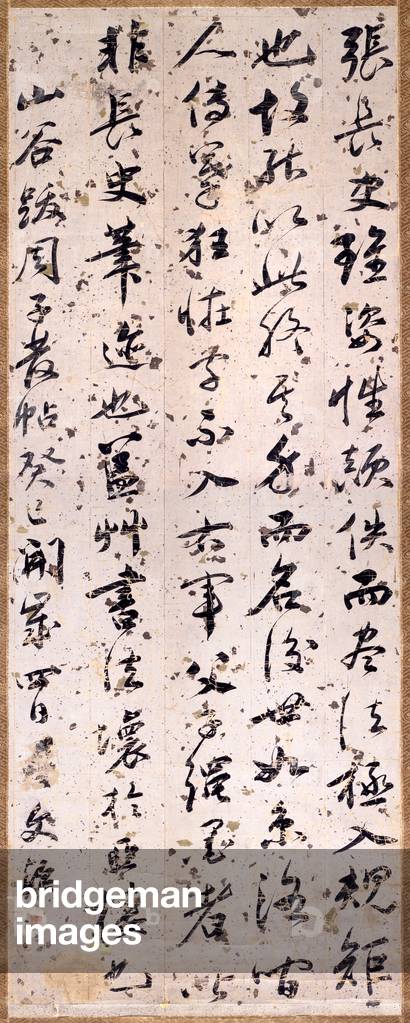 張長史雖姿性顛佚而書法極入規矩
也故能以此終其身而名後世如京洛間
人傳摹狂怪字不入右軍父子繩墨者皆
非長史筆迹也蓋艸書法壞於亞棲也
山谷跋周子發帖癸巳開歲四日
bridgeman
images